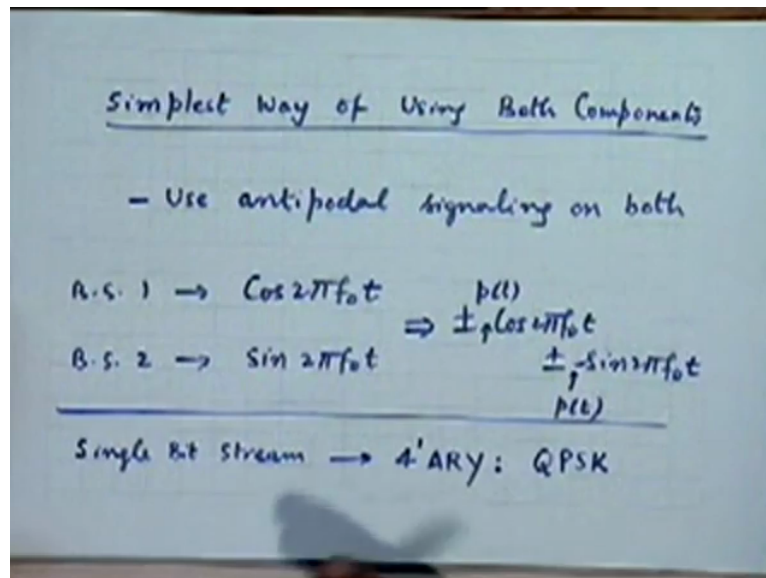 Simplest Way of Using Both Components
- Use antipodal signaling on both
B.S. 1 → Cos 2πf₀t
p(t)
⇒ ± Cos 2πf₀t
B.S. 2 → Sin 2πf₀t
± Sin 2πf₀t
p(t)
Single Bit Stream → 4'ARY : QPSK